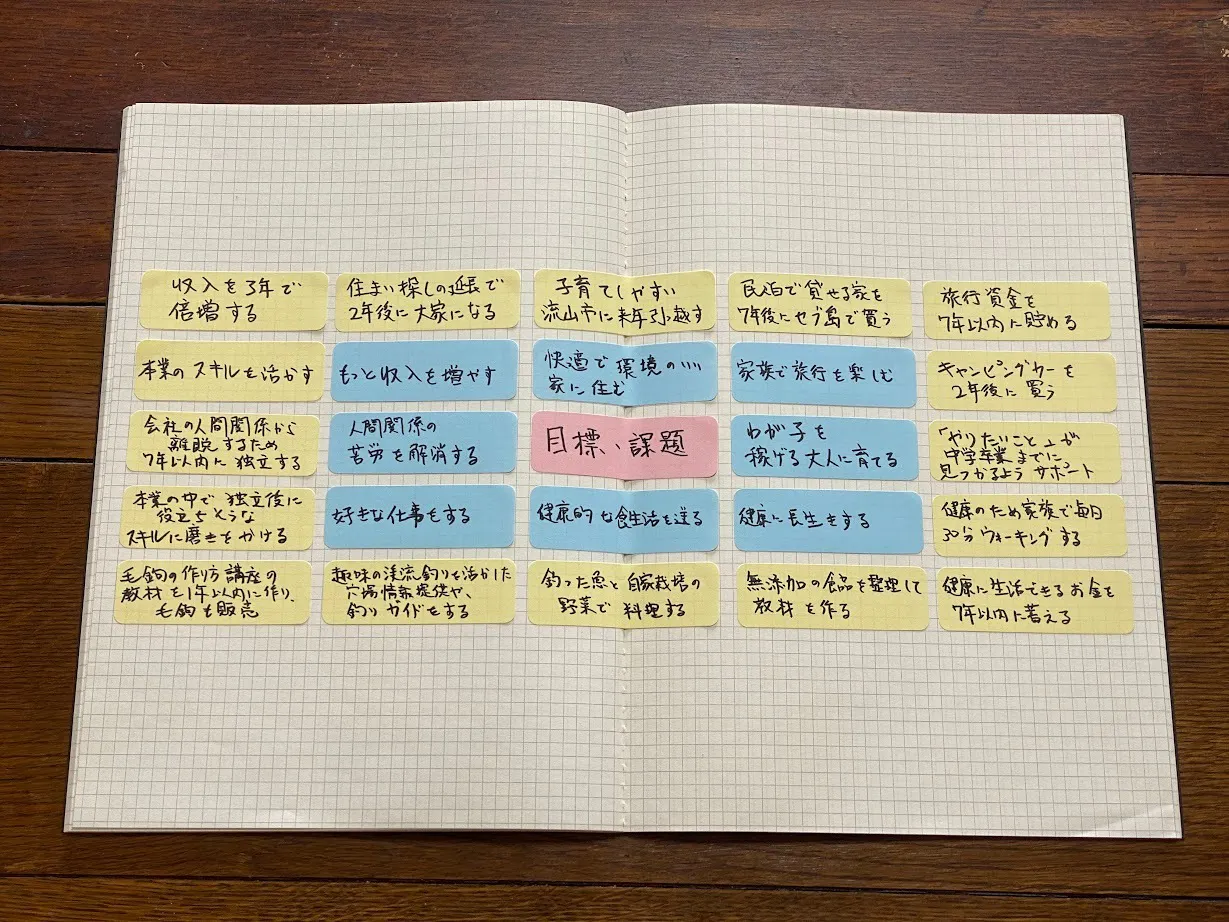 収入を3年で
倍増する
住まい探しの延長で
2年後に大家になる
子育てしやすい
流山市に来年引越す
民泊で貸せる家を
7年後にセブ島で買う
旅行資金を
7年以内に貯める
本業のスキルを活かす
もっと収入を増やす
快適で環境のいい
家に住む
家族で旅行を楽しむ
キャンピングカーを
2年後に買う
会社の人間関係から
離脱するため
7年以内に独立する
人間関係の
苦労を解消する
目標、課題
わが子を
稼げる大人に育てる
「やりたいこと」が
中学卒業までに
見つかるようサポート
本業の中で独立後に
役立ちそうな
スキルに磨きをかける
好きな仕事をする
健康的な食生活を送る
健康に長生きをする
健康のため家族で毎日
30分ウォーキングする
毛鉤の作り方講座の
教材を1年以内に作り、
毛鉤を販売
趣味の渓流釣りを活かした
穴場情報提供や、
釣りガイドをする
釣った魚と自家栽培の
野菜で料理する
無添加の食品を整理して
教材を作る
健康に生活できるお金を
7年以内に蓄える